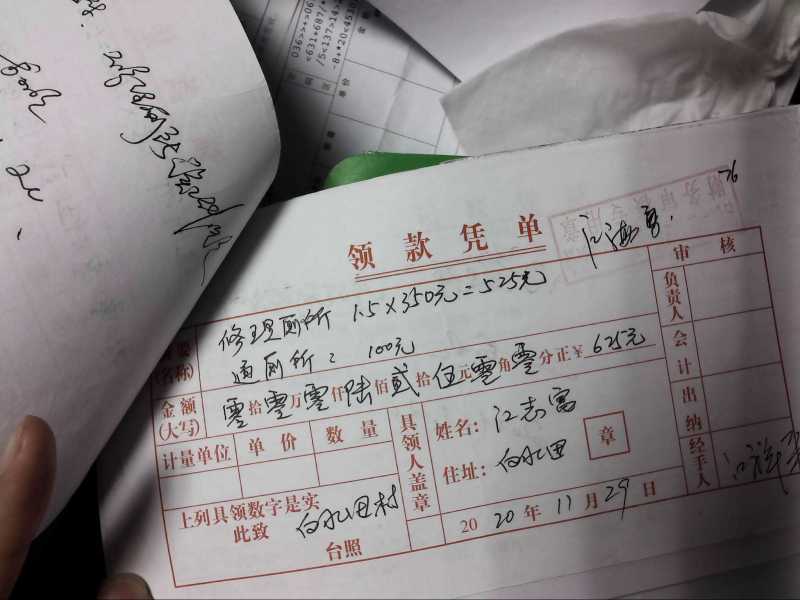 036>>+>06
<631+687/*
/5<137>14>
-8+*20<4510
领款凭单
审核
修理厕所 1.5×350元=525元
通厕所: 100元
(名称)
负责人
会计
出纳
经手人
金额(大写) 零拾零万零仟陆佰贰拾伍元零角零分正¥625元
计量单位 单价 数量
具领人盖章
姓名: 江志富
住址: 白水田
章
上列具领数字是实
此致 白水田村
台照
2020年11月29日